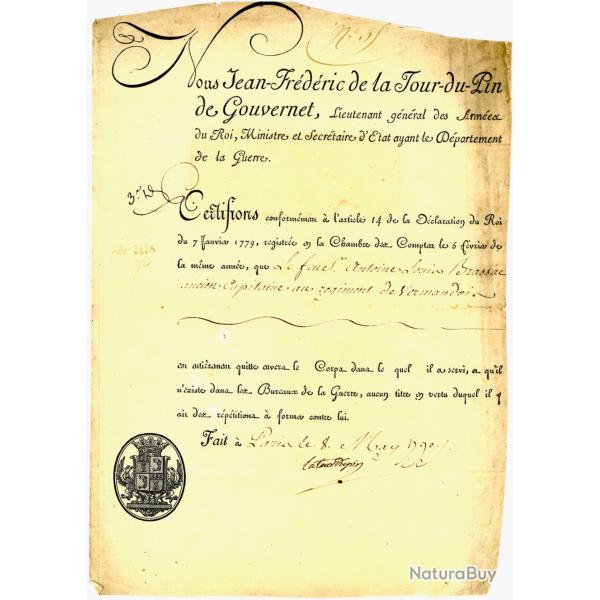 N.° 35
Nous Jean-Frédéric de la Tour-du-Pin
de Gouvernet, Lieutenant général des Armées
du Roi, Ministre et Secrétaire d'Etat ayant le Département
de la Guerre.
3.e D
Certifions conformémen à l'article 14 de la Déclaration du Roi
du 7 Janvier 1779, régistrée en la Chambre des Comptes le 6 février de
la même année, que Le feu S.r Antoine Louis Brassac
ancien Capitaine au regiment de Vermandois
est entiéremen quitte envers le Corps dans le quel il a servi, et qu'il
n'existe dans les Bureaux de la Guerre, aucun titre en vertu duquel il y
ait des répétitions à former contre lui.
Fait à Paris le 8. May 1790.
Latourdupin
NaturaBuy